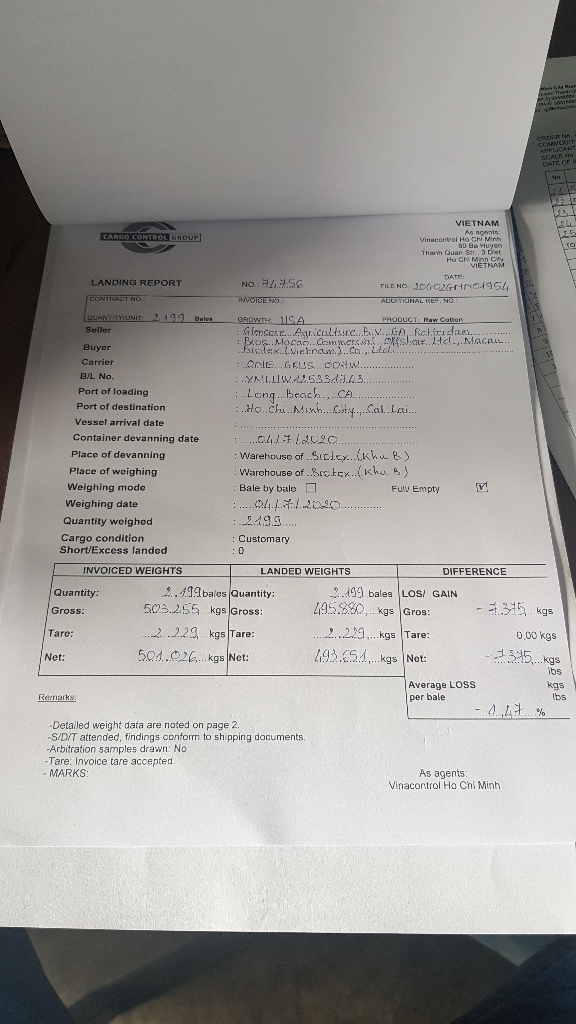 CARGO CONTROL GROUP
VIETNAM
As agents:
Vinacontrol Ho Chi Minh
80 Ba Huyen
Thanh Quan Str., 3 Dist.
Ho Chi Minh City
VIETNAM
DATE:
LANDING REPORT NO. 74756 FILE NO.: 20G02GHN01954
CONTRACT NO. INVOICE NO.: ADDITIONAL REF. NO.:
QUANTITY/UNIT: 2.199 Bales GROWTH: USA PRODUCT: Raw Cotton
Seller : Glencore Agriculture B.V. GA Rotterdam
Buyer : Bros Macao Commercial Offshore Ltd., Macau
Biotex (Vietnam) Co., Ltd.
Carrier : ONE GRUS 004W
B/L No. :
Port of loading : Long Beach, CA
Port of destination : Ho Chi Minh City, Cat Lai
Vessel arrival date :
Container devanning date : 04/7/2020
Place of devanning : Warehouse of Biotex (Khu B)
Place of weighing : Warehouse of Biotex (Khu B)
Weighing mode : Bale by bale Full/ Empty
Weighing date : 04/7/2020
Quantity weighed : 2199
Cargo condition : Customary
Short/Excess landed : 0
INVOICED WEIGHTS LANDED WEIGHTS DIFFERENCE
Quantity: 2.199 bales Quantity: 2.199 bales LOS/ GAIN
Gross: 503.255 kgs Gross: 495.880 kgs Gros: - 7.375 kgs
Tare: 2.229 kgs Tare: 2.229 kgs Tare: 0,00 kgs
Net: 501.026 kgs Net: 493.651 kgs Net: - 7.375 kgs
lbs
Average LOSS kgs
per bale lbs
- 1,47 %
Remarks:
-Detailed weight data are noted on page 2.
-S/D/T attended, findings conform to shipping documents.
-Arbitration samples drawn: No
-Tare: Invoice tare accepted.
- MARKS:
As agents:
Vinacontrol Ho Chi Minh